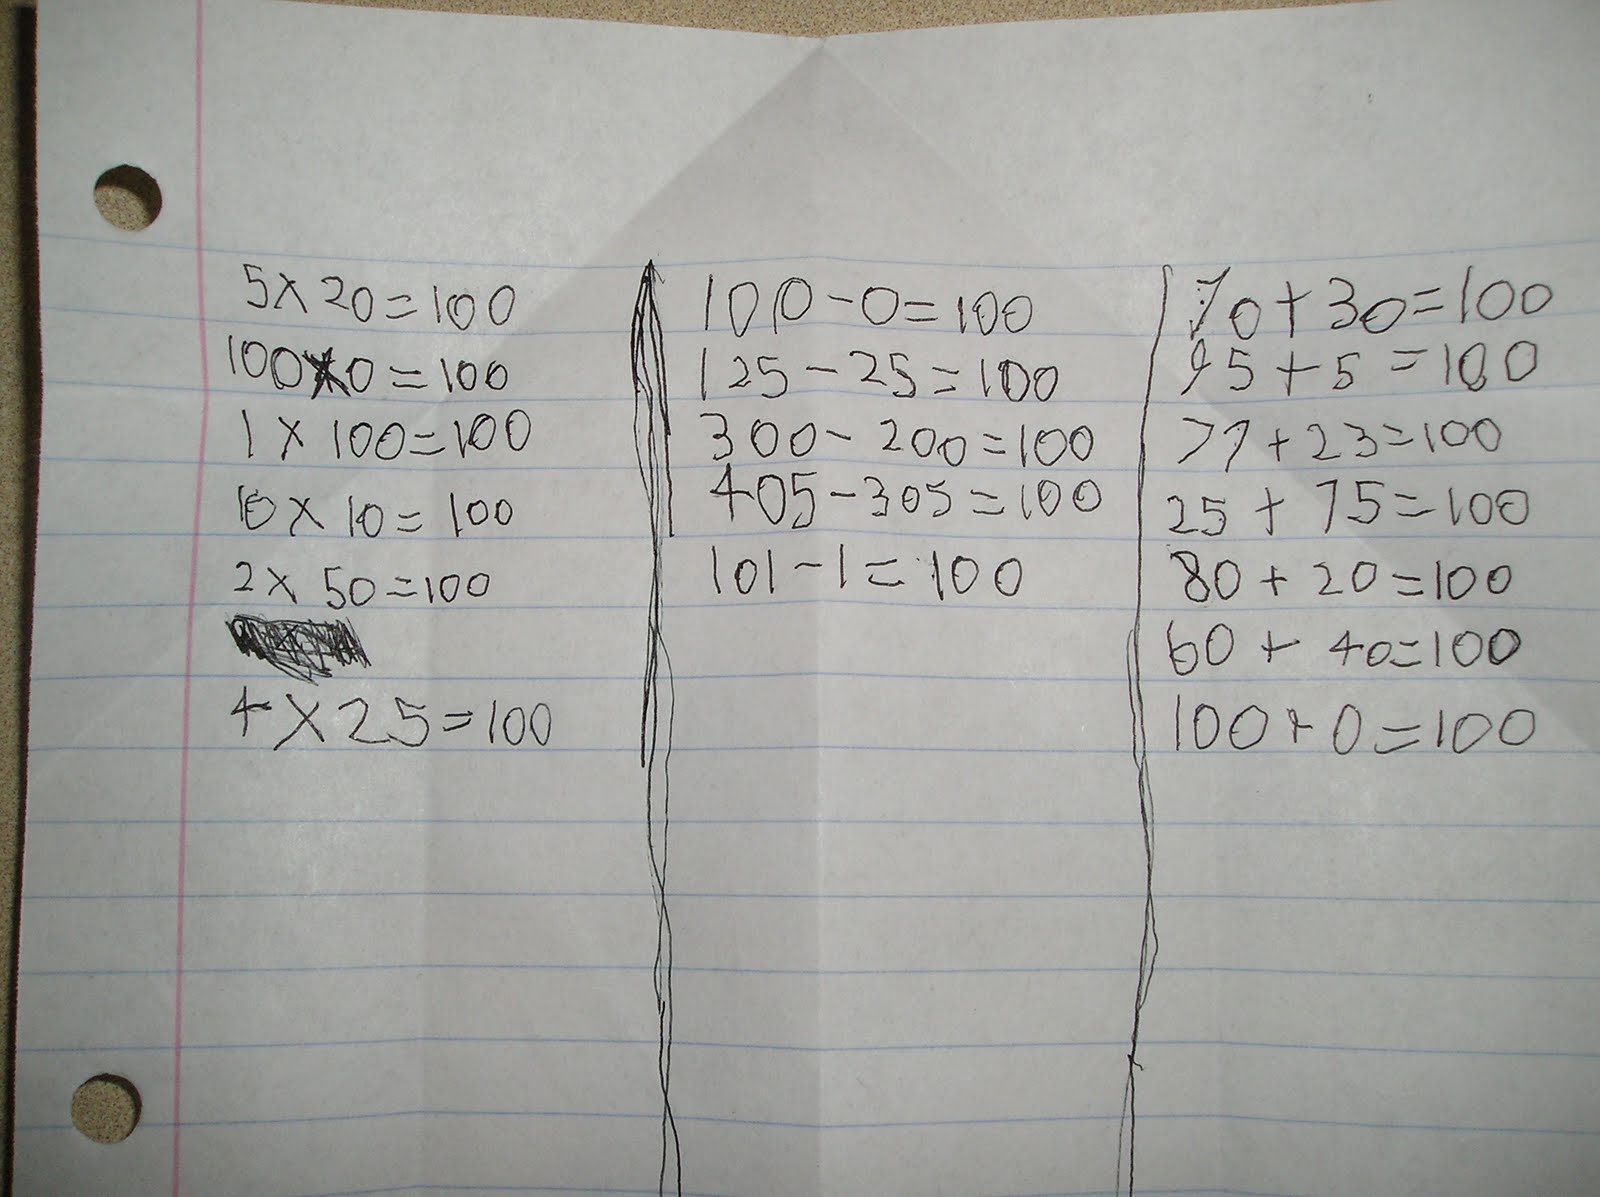 5 x 20 = 100
100 x 0 = 100
1 x 100 = 100
10 x 10 = 100
2 x 50 = 100
4 x 25 = 100
100 - 0 = 100
125 - 25 = 100
300 - 200 = 100
405 - 305 = 100
101 - 1 = 100
70 + 30 = 100
95 + 5 = 100
77 + 23 = 100
25 + 75 = 100
80 + 20 = 100
60 + 40 = 100
100 + 0 = 100